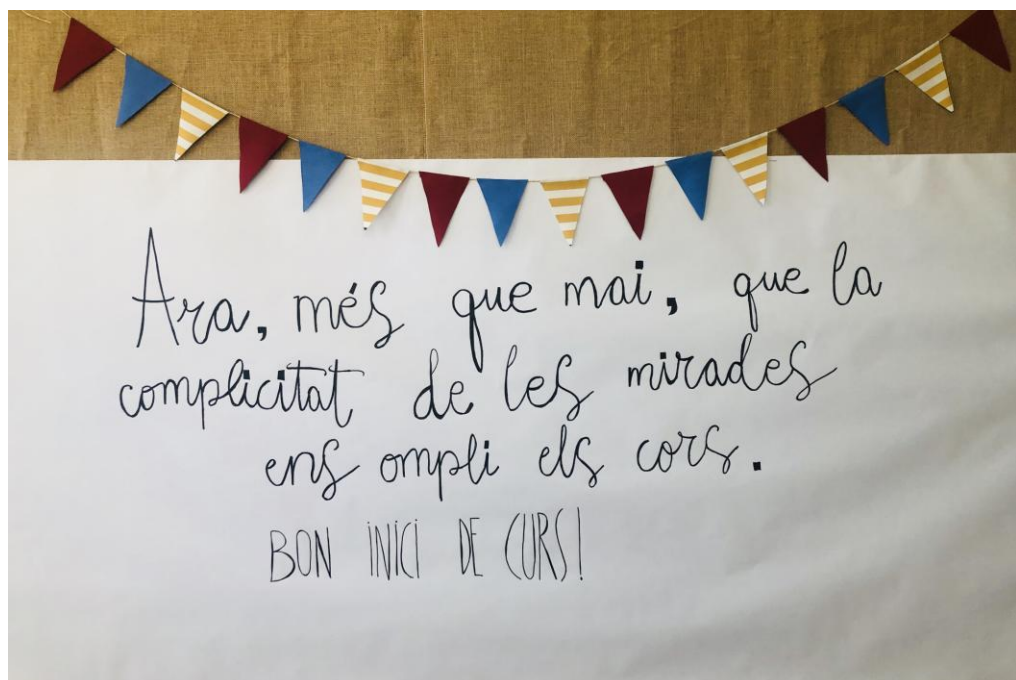 Ara, més que mai, que la
complicitat de les mirades
ens ompli els cors.
BON INICI DE CURS!